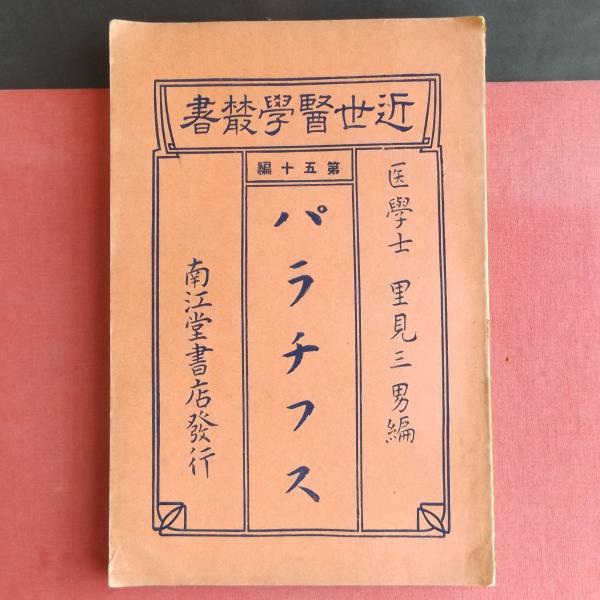 近世醫學叢書
第五十編
医學士 里見三男編
パラチフス
南江堂書店發行